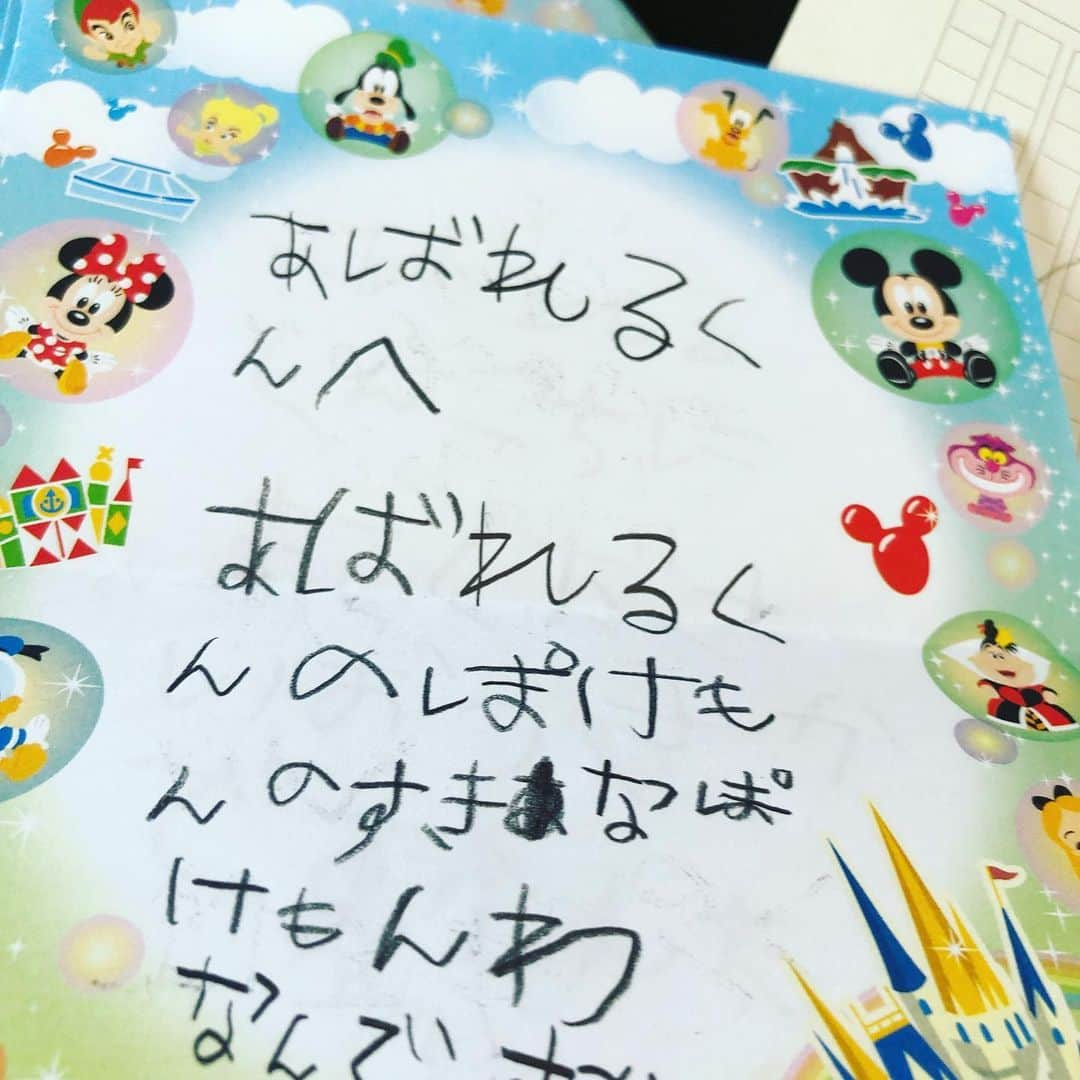 あばれるく
んへ
あばれるく
んのぽけも
んのすきなぽ
けもんわ
なんで